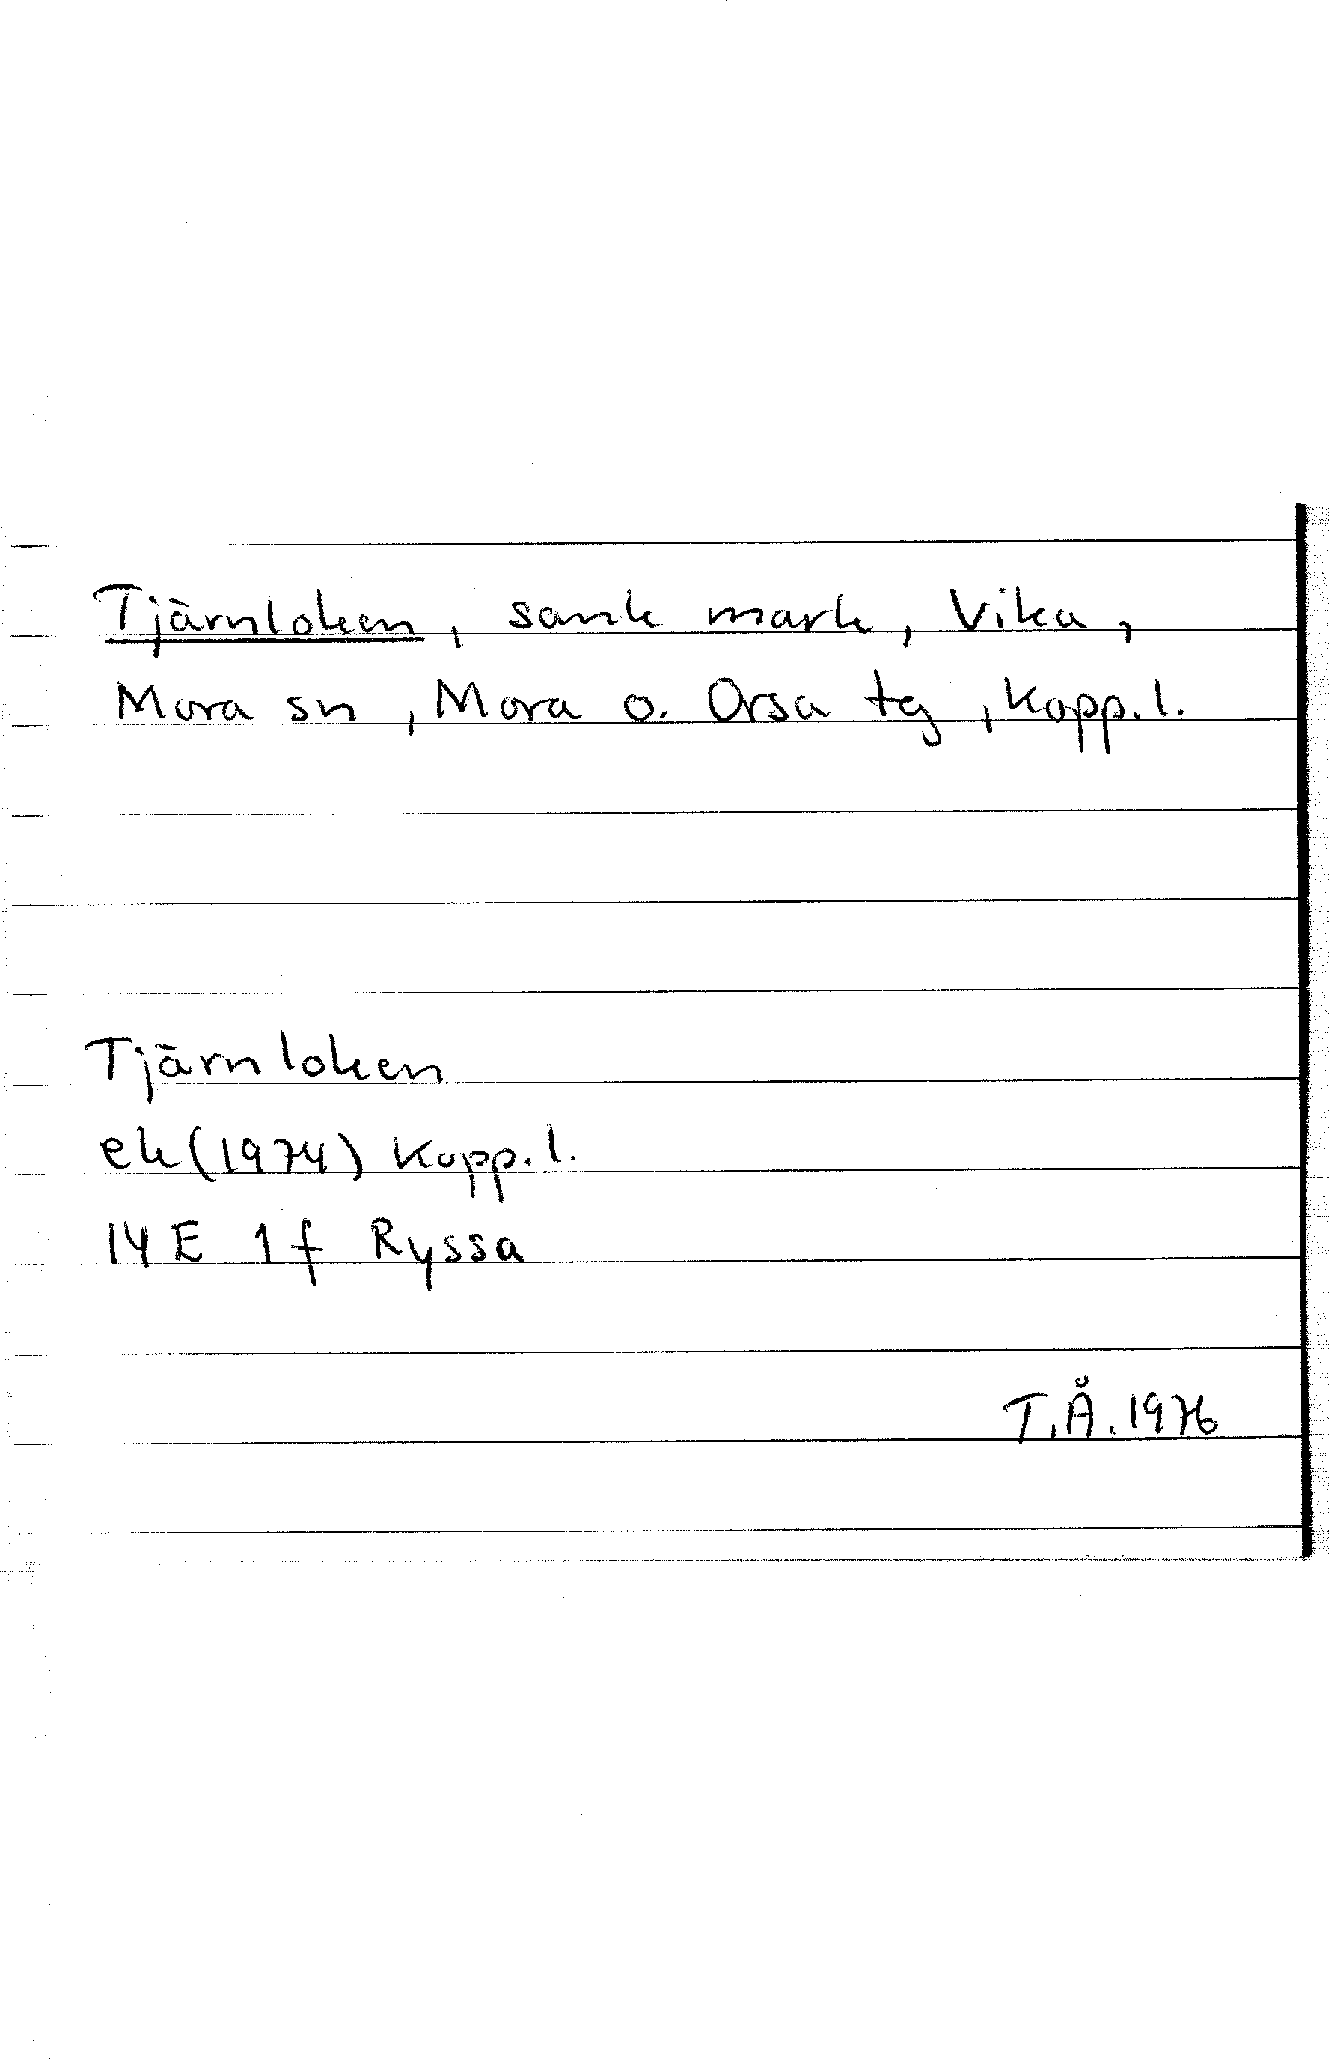 Tjärnloken, sank mark, Vika,
Mora sn, Mora o. Orsa tg, Kopp. l.
Tjärnloken
ek (1974) Kopp. l.
14 E 1 f Ryssa
T.Å. 1976